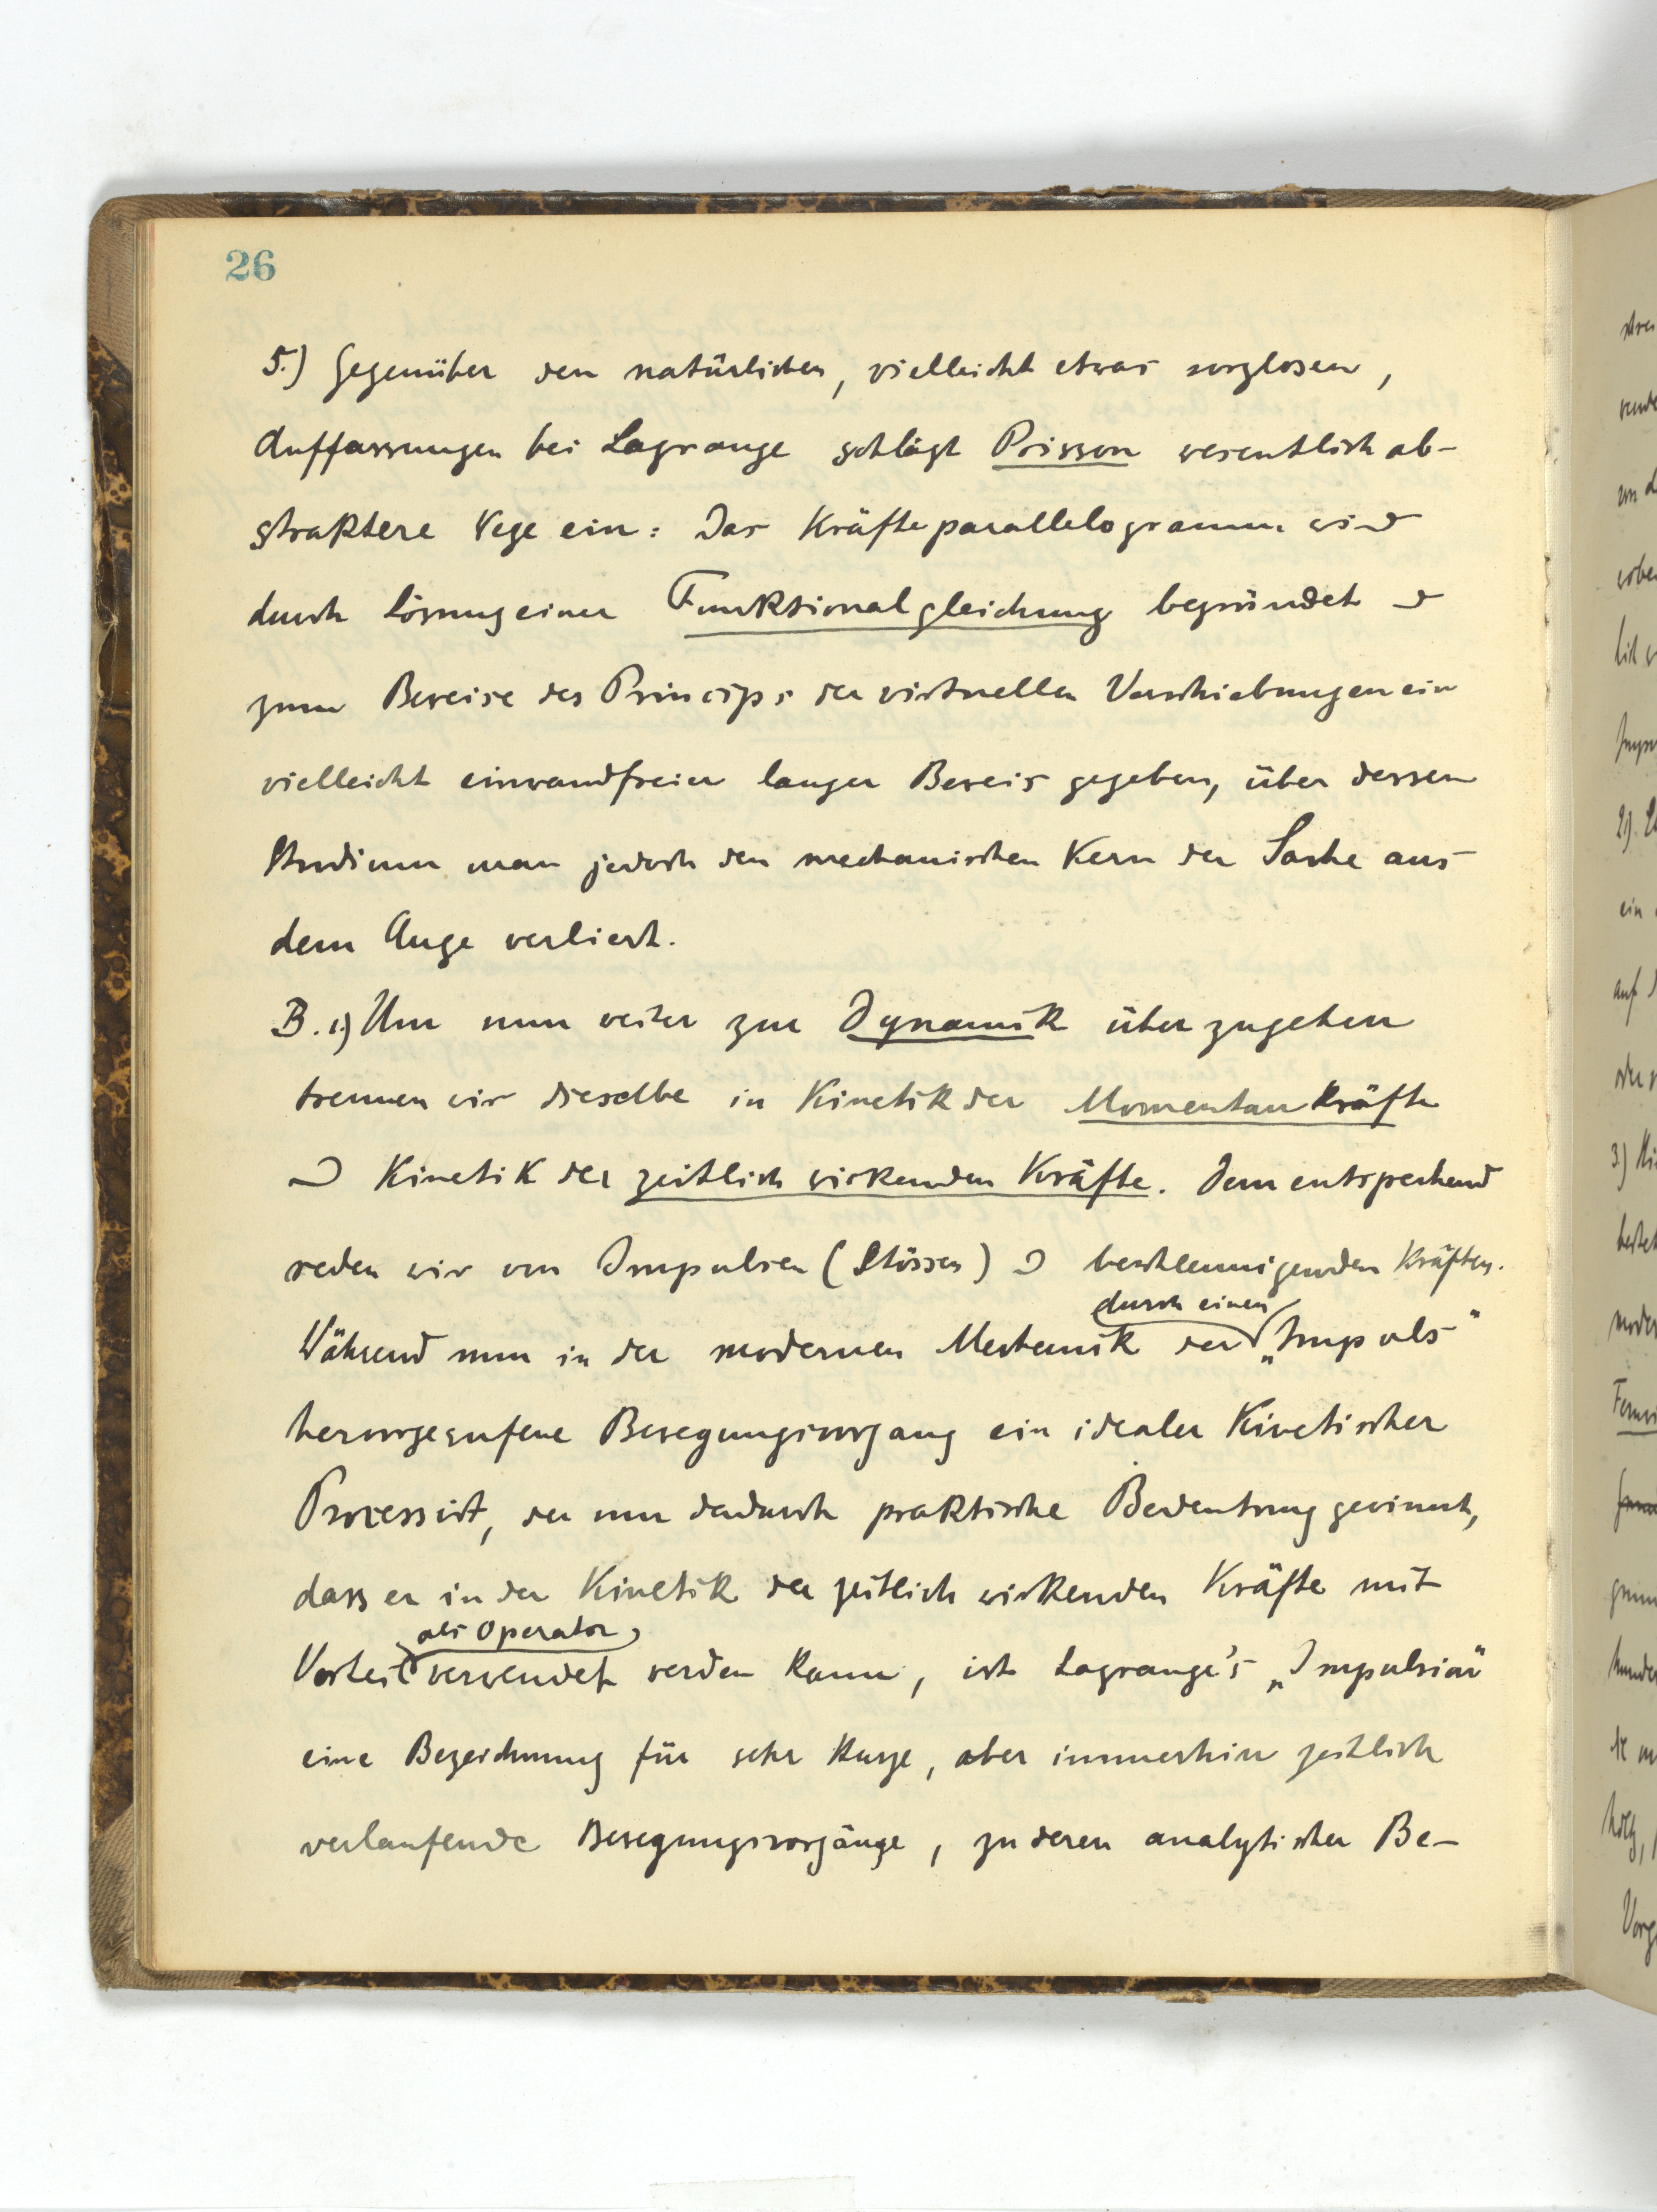 26
5.) Gegenüber den natürlichen, vielleicht etwas sorglosen,
Auffassungen bei Lagrange schlägt Poisson wesentlich ab-
straktere Wege ein: Das Kräfteparallelogramm wird
durch Lösung einer Funktionalgleichung begründet &
zum Beweise des Princips der virtuellen Verschiebungen ein
vielleicht einwandfreier langer Beweis gegeben, über dessen
Studium man jedoch den mechanischen Kern der Sache aus
dem Auge verliert.
B. 1) Um nun weiter zur Dynamik überzugehen
trennen wir dieselbe in Kinetik der Momentankräfte
& Kinetik der zeitlich wirkenden Kräfte. Dementsprechend
reden wir von Impulsen (Stössen) & beschleunigenden Kräften.
durch einen
Während nun in der modernen Mechanik der „Impuls"
hervorgerufene Bewegungsvorgang ein idealer Kinetischer
Prozess ist, der nur dadurch praktische Bedeutung gewinnt,
dass er in der Kinetik der zeitlich wirkenden Kräfte mit
als Operator
Vorteil verwendet werden kann, ist Lagrange's „Impulsion"
eine Bezeichnung für sehr kurze, aber immerhin zeitlich
verlaufende Bewegungsvorgänge, zu deren analytischer Be-